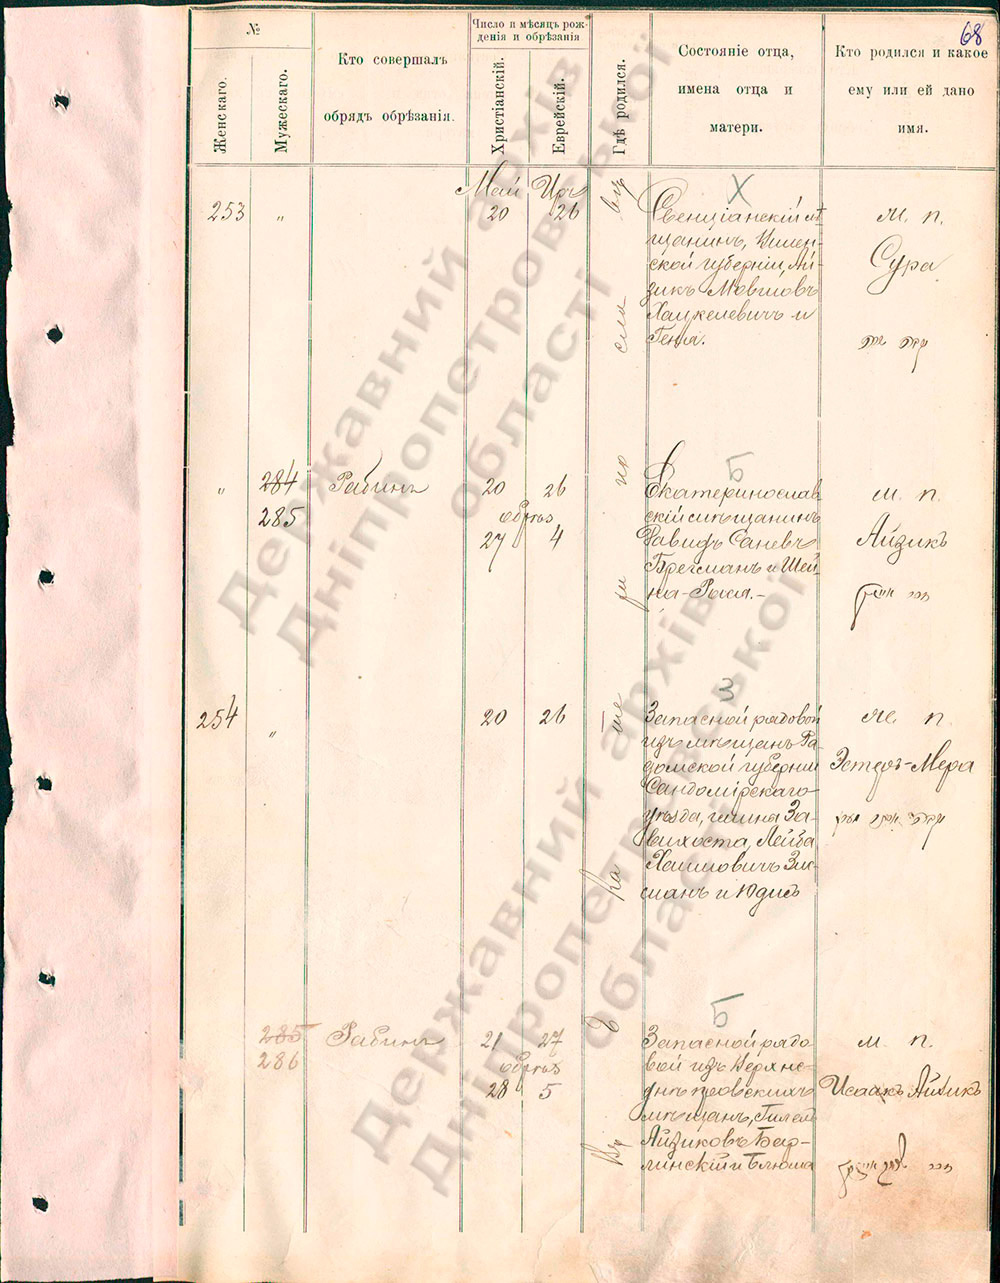 68
№
Женскаго.
Мужескаго.
Кто совершалъ
обрядъ обрѣзанія.
Число и мѣсяцъ рож-
денія и обрѣзанія
Христіанскій.
Еврейскій.
Гдѣ родился.
Состояніе отца,
имена отца и
матери.
Кто родился и какое
ему или ей дано
имя.
Май
253 „ 20 26
Х
Свенціанскій мѣ
щанинъ, Виленской губерніи, Ай-
зикъ Мовшовъ
Хацкелевичъ и
Геня.
м. п.
Сура
„ 284 Рабинъ 20 26
285 обрѣз
27 4
Б
Екатеринослав
скій мѣщанинъ
Давидъ
Брегманъ и Шей-
на-
м. п.
Айзикъ
254 „ 20 26
З
Запасной рядовой
изъ мѣщанъ Ра-
домской губерніи
Сандомірскаго
уѣзда, гмина За-
вихоста, Лейба
Хаимовичъ Зис-
манъ и Юдисъ
м. п.
Эстеръ-Мера
285 Рабинъ 21 27
286 обрѣз
28 5
Б
Запасной рядо-
вой изъ Верхне-
днѣпровскихъ
мѣщанъ, Гилель
Айзиковъ Бер-
линскій и Блюма
м. п.
Исаакъ Айзикъ
Въ Екатеринославѣ
Державний архів
Дніпропетровської
області
Державний архів
Дніпропетровської
області